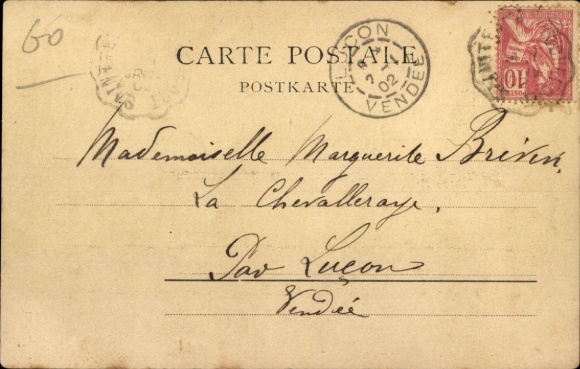 60
CARTE POSTALE
POSTKARTE
LUÇON
02
VENDÉE
10
Mademoiselle Marguerite
La Chevalleraye,
Par Luçon
Vendée